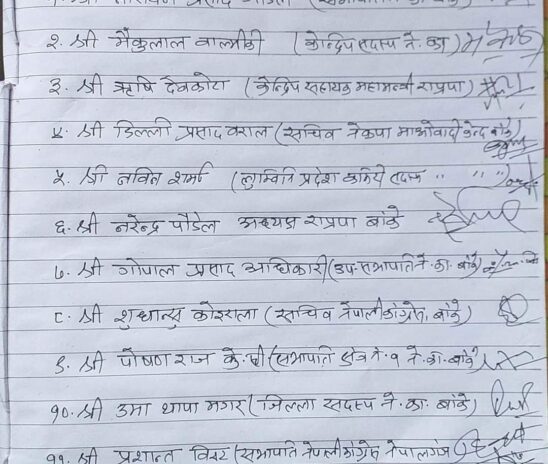 २. श्री मैकुलाल वाल्मीकी (केन्द्रिय सदस्य ने. का)
३. श्री ऋषि देवकोटा (केन्द्रिय सहायक महामन्त्री राप्रपा)
४. श्री डिल्ली प्रसाद वराल (सचिव नेकपा माओवादी केन्द्र बाँके)
५. श्री नविन शर्मा (लुम्विनि प्रदेश कमिटी सदस्य " " ")
६. श्री नरेन्द्र पौडेल अध्यक्ष राप्रपा बांके
७. श्री गोपाल प्रसाद अधिकारी (उप-सभापति ने. का. बाँके)
८. श्री कोइराला (सचिव नेपाली काँग्रेस, बाँके)
९. श्री पोषण राज के.सी (सभापति क्षेत्र नं. १ ने. का. बाँके)
१०. श्री उमा थापा मगर (जिल्ला सदस्य ने. का. बाँके)
११. श्री प्रशान्त विष्ट (सभापति नेपाली काँग्रेस नेपालगंज